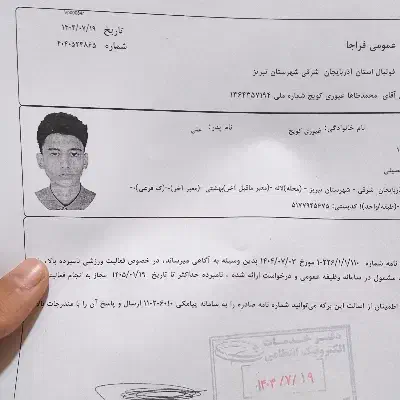 تاریخ ۱۴۰۴/۰۷/۱۹
شماره ۴۰۴۰۵۲۳۸۶۵
عمومی فراجا
فوتبال استان آذربایجان شرقی شهرستان تبریز
آقای محمدطاها عیوری کویج شماره ملی ۱۳۶۴۳۵۷۱۹۴
نام خانوادگی: عیوری کویج نام پدر: علی
شرقی - شهرستان تبریز - (محله)لاله -(معبر ماقبل آخر)بهشتی -(معبر آخر)-(ک فرعی)،-
-(طبقه/واحد)۱ کدپستی: ۵۱۷۷۹۴۵۶۷۵
نامه شماره ۱۰۲۳۶/۱/۱/۱۱۰ مورخ ۱۴۰۴/۰۷/۰۲ بدین وسیله به آگاهی میرساند، در خصوص فعالیت ورزشی نامبرده بالا،
مشمول در سامانه وظیفه عمومی و درخواست ارائه شده ، نامبرده حداکثر تا تاریخ ۱۴۰۵/۰۱/۱۹ مجاز به انجام فعالیت
اطمینان از اصالت این برگه می‌توانید شماره نامه صادره را به سامانه پیامکی ۱۱۰۲۰۶۰۱۰ ارسال و پاسخ آن را با مندرجات بالا
دفتر خدمات
الکترونیک انتظامی
۱۴۰۴/۷/۱۹